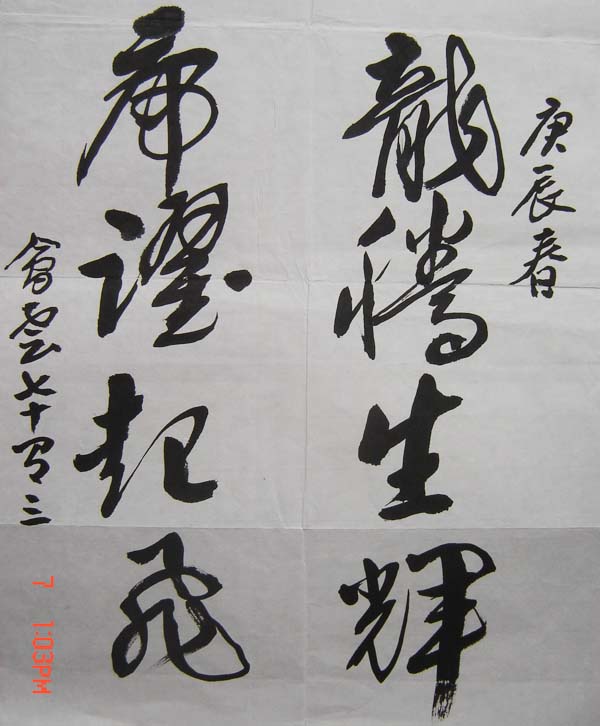 庚辰春
龍騰生輝
虎躍起飛
會雲七十又三
7 1:03PM